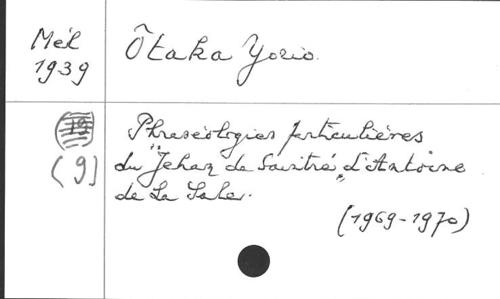 Mél
1939
Ōtaka Yorio.
(9)
Phraséologies particulières
du "Jehan de Saintré" d'Antoine
de La Sale.
(1969-1970)